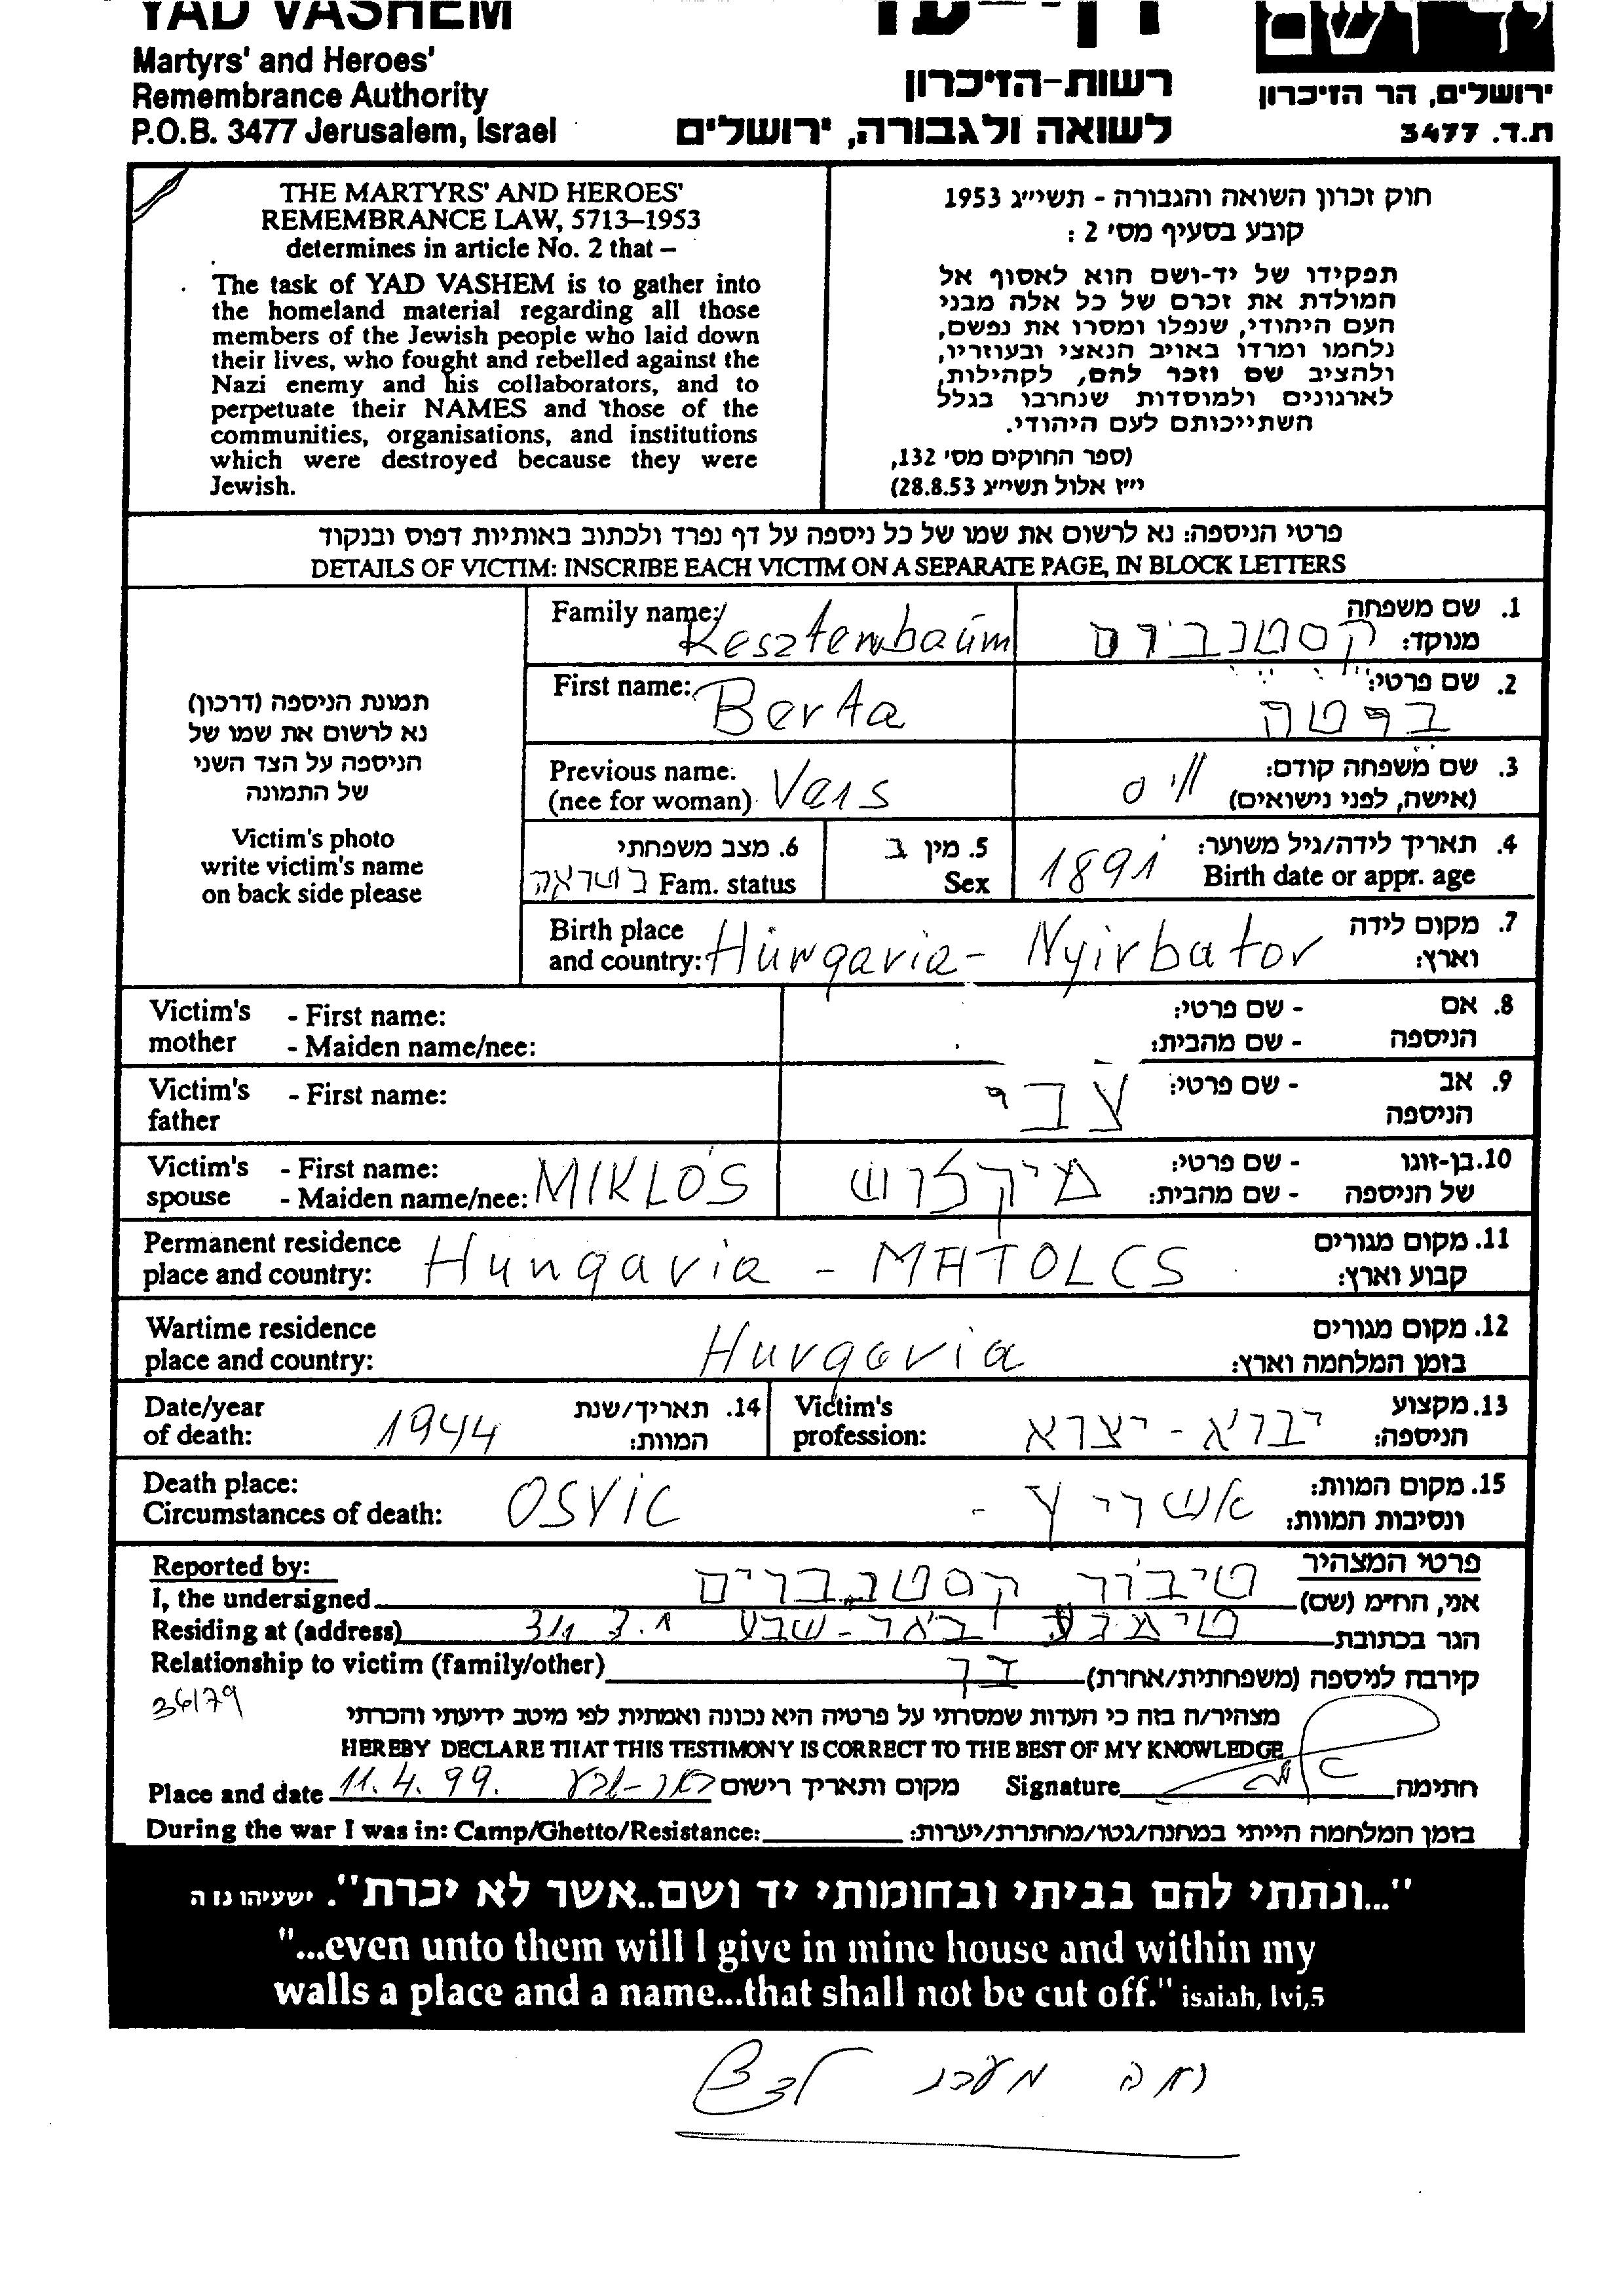 YAD VASHEM
דף-עד
Martyrs' and Heroes'
Remembrance Authority
P.O.B. 3477 Jerusalem, Israel
רשות-הזיכרון
לשואה ולגבורה, ירושלים
יד ושם
ירושלים, הר הזיכרון
ת.ד. 3477
THE MARTYRS' AND HEROES'
REMEMBRANCE LAW, 5713–1953
determines in article No. 2 that –
The task of YAD VASHEM is to gather into
the homeland material regarding all those
members of the Jewish people who laid down
their lives, who fought and rebelled against the
Nazi enemy and his collaborators, and to
perpetuate their NAMES and those of the
communities, organisations, and institutions
which were destroyed because they were
Jewish.
חוק זכרון השואה והגבורה - תשי"ג 1953
קובע בסעיף מס' 2 :
תפקידו של יד-ושם הוא לאסוף אל
המולדת את זכרם של כל אלה מבני
העם היהודי, שנפלו ומסרו את נפשם,
נלחמו ומרדו באויב הנאצי ובעוזריו,
ולהציב שם וזכר להם, לקהילות,
לארגונים ולמוסדות שנחרבו בגלל
השתייכותם לעם היהודי.
(ספר החוקים מס' 132,
י"ז אלול תשי"ג 28.8.53)
פרטי הניספה: נא לרשום את שמו של כל ניספה על דף נפרד ולכתוב באותיות דפוס ובנקוד
DETAILS OF VICTIM: INSCRIBE EACH VICTIM ON A SEPARATE PAGE, IN BLOCK LETTERS
תמונת הניספה (דרכון)
נא לרשום את שמו של
הניספה על הצד השני
של התמונה
Victim's photo
write victim's name
on back side please
Family name: Kesztembaúm
1. שם משפחה
מנוקד: קסטנבוים
First name: Berta
2. שם פרטי:
ברטה
Previous name:
(nee for woman) Veis
3. שם משפחה קודם:
(אישה, לפני נישואים) וויס
6. מצב משפחתי
Fam. status נשואה
5. מין נ
Sex
4. תאריך לידה/גיל משוער:
Birth date or appr. age 1891
Birth place
and country: Húngaria - Nyirbator
7. מקום לידה
וארץ:
Victim's mother - First name:
- Maiden name/nee:
8. אם הניספה - שם פרטי:
- שם מהבית:
Victim's father - First name:
9. אב הניספה - שם פרטי: צבי
Victim's spouse - First name:
- Maiden name/nee: MIKLÓS
10. בן-זוגו של הניספה - שם פרטי:
- שם מהבית: מיקלוש
Permanent residence
place and country: Hungaria - MATOLCS
11. מקום מגורים
קבוע וארץ:
Wartime residence
place and country: Hungaria
12. מקום מגורים
בזמן המלחמה וארץ:
Date/year
of death: 1944
14. תאריך/שנת
המוות:
Victim's
profession:
13. מקצוע
הניספה:
Death place:
Circumstances of death: OSVIC
15. מקום המוות:
ונסיבות המוות: אושויץ -
Reported by:
פרטי המצהיר
I, the undersigned טיבור קסטנבוים אני, החי"מ (שם)
Residing at (address) באר-שבע הגר בכתובת
Relationship to victim (family/other) בן קירבה לניספה (משפחתית/אחרת)
36/79
מצהיר/ה בזה כי העדות שמסרתי על פרטיה היא נכונה ואמתית לפי מיטב ידיעתי והכרתי
HEREBY DECLARE THAT THIS TESTIMONY IS CORRECT TO THE BEST OF MY KNOWLEDGE
Place and date 11.4.99. באר-שבע מקום ותאריך רישום Signature חתימה
During the war I was in: Camp/Ghetto/Resistance: בזמן המלחמה הייתי במחנה/גטו/מחתרת/יערות:
"...ונתתי להם בביתי ובחומותי יד ושם..אשר לא יכרת". ישעיהו נו ה
"...even unto them will I give in mine house and within my
walls a place and a name...that shall not be cut off." isaiah, lvi,5